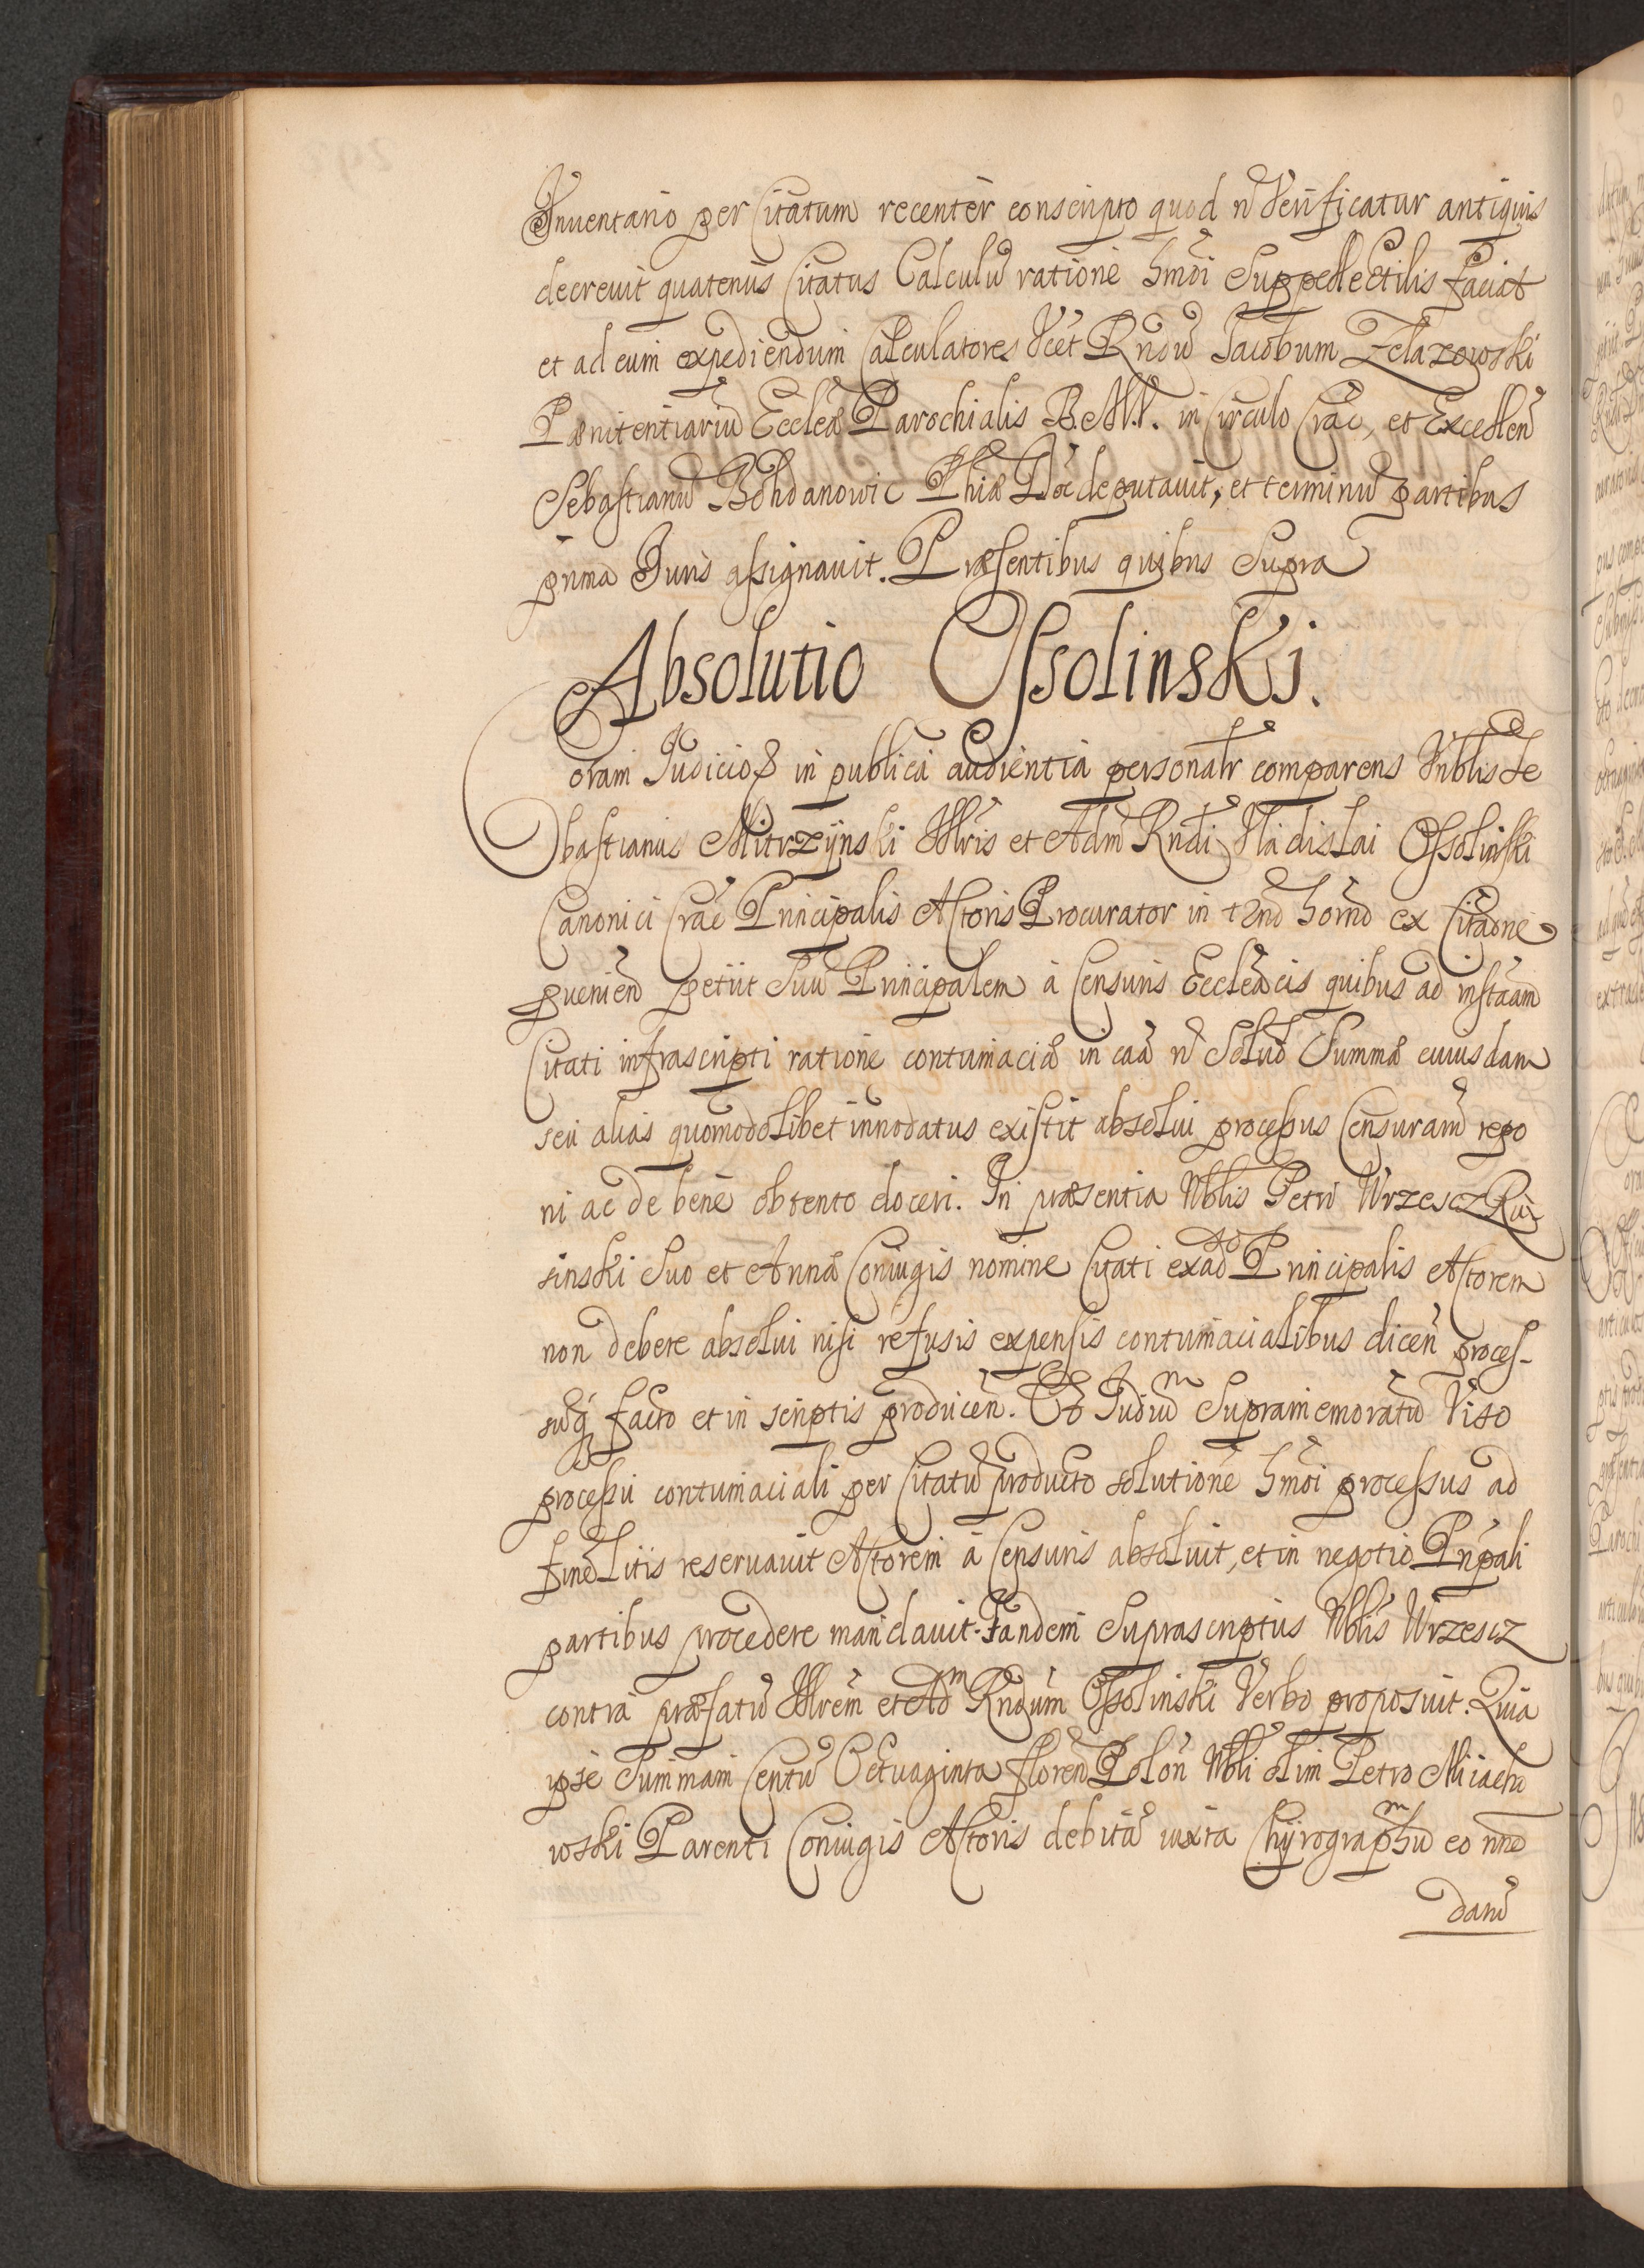 Inventario per Citatum recenter conscripto quod n̄ Verificatur antiquis
decrevit quatenus Citatus Calculū ratione hmōi Suppellectilis faciat
et ad eum expediendum Calculatores Vēēt Rndū Jacobum Zelazowski
Pænitentiariū Ecclēæ Parochialis B.M.V. in Circulo Crāc, et Excellen̄
Sebastianū Bohdanowic Phiæ Doc̄ deputavit, et terminū partibus
prima Juris assignavit. Præsentibus quibus Supra
Absolutio Ossolinski.
oram Judicioq̢ in publica audientia personalr̄ comparens Nblis Se
bastianus Mitrzÿnski Illris et Adm̄ Rndi Vladislai Ossolinski
Canonici Crāc Principalis Actoris Procurator in trn̄o horn̄o ex Citāone
pvenien̄ petiit Suū Principalem à Censuris Ecclēācis quibus ad instāam
Citati infrascripti ratione contumaciæ in caā n̄ Solutæ Summæ cuiusdam
seu alias quomodolibet innodatus existit absolvi processus Censurarū repo
ni ac de bene obtento doceri. In præsentia Nblis Petri Wrzescz Ru
sinski Suo et Annæ Coniugis nomine Citati ex ado Principalis Actorem
non debere absolui nisi refusis expensis contumacialibus dicen̄ proces-
suq̢ facto et in scriptis producen̄. Et Judiūm Supramemoratū Viso
processu contumaciali per Citatū producto solutione hmōi processus ad
finē Litis reservavit Actorem à Censuris absoluit, et in negotio Prīpali
partibus procedere mandavit. Tandem Suprascriptus Nblis Wrzescz
contra præfatū Illrem et Adm Rndum Ossolinski Verbo proposuit. Quia
ipse Summam Centū Octuaginta floren̄ Polon̄ Nbli olim Petro Miacho
wski Parenti Coniugis Actoris debitā iuxta Chÿrographūm eo nn̄e
datū